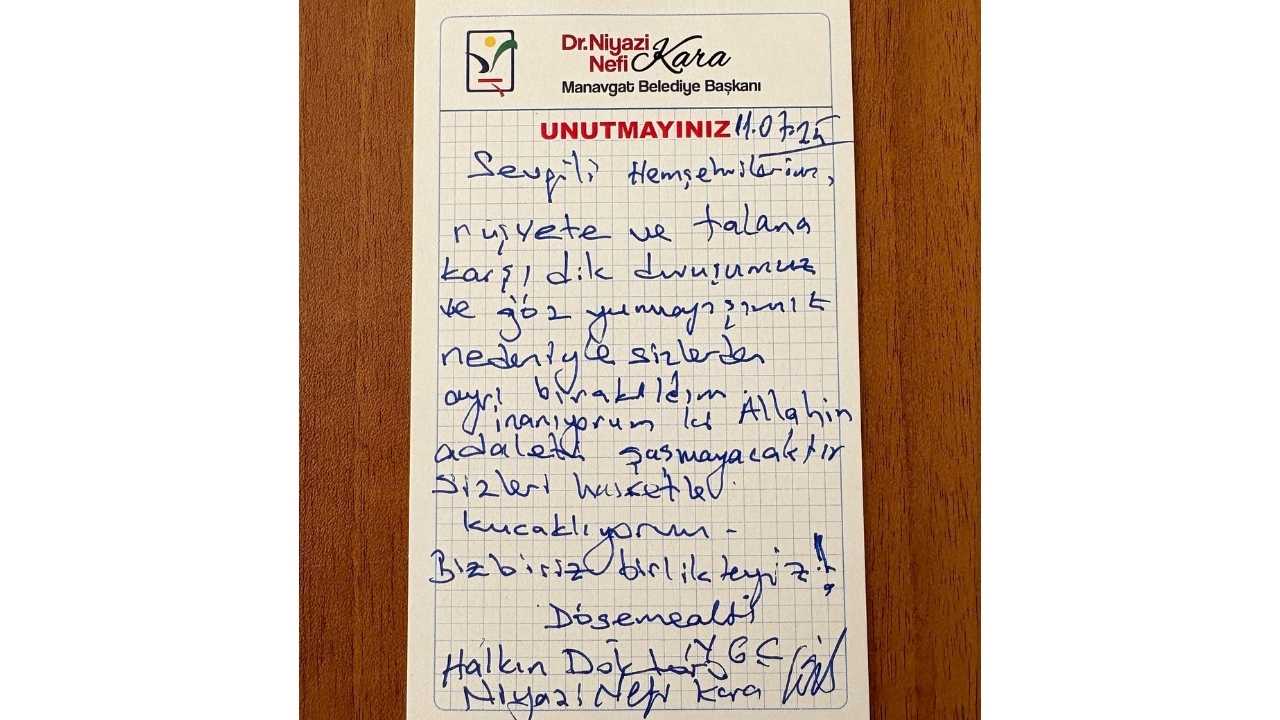 Dr. Niyazi
Nefi Kara
Manavgat Belediye Başkanı
UNUTMAYINIZ 11.07.25
Sevgili Hemşehrilerim,
rüşvete ve talana
karşı dik duruşumuz
ve göz yummayışımız
nedeniyle sizlerden
ayrı bırakıldım
inanıyorum ki Allahın
adaleti şaşmayacaktır
sizleri hasretle
kucaklıyorum -
Biz biriz birlikteyiz!!
Döşemealtı
YGC
Halkın Doktoru
Niyazi Nefi Kara